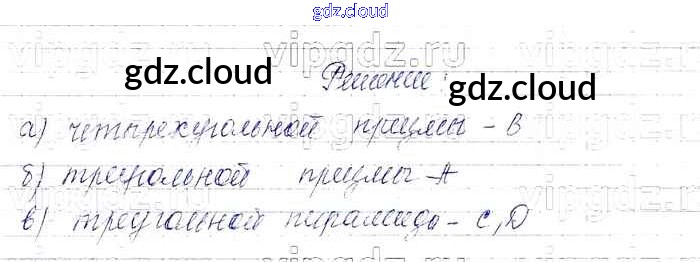 gdz.cloud
vipgdz.ru vipgdz.ru
gdz.cloud Решение: gdz.cloud
а) четырехугольной призмы - B
б) треугольной призмы - A
в) треугольной пирамиды - C, D